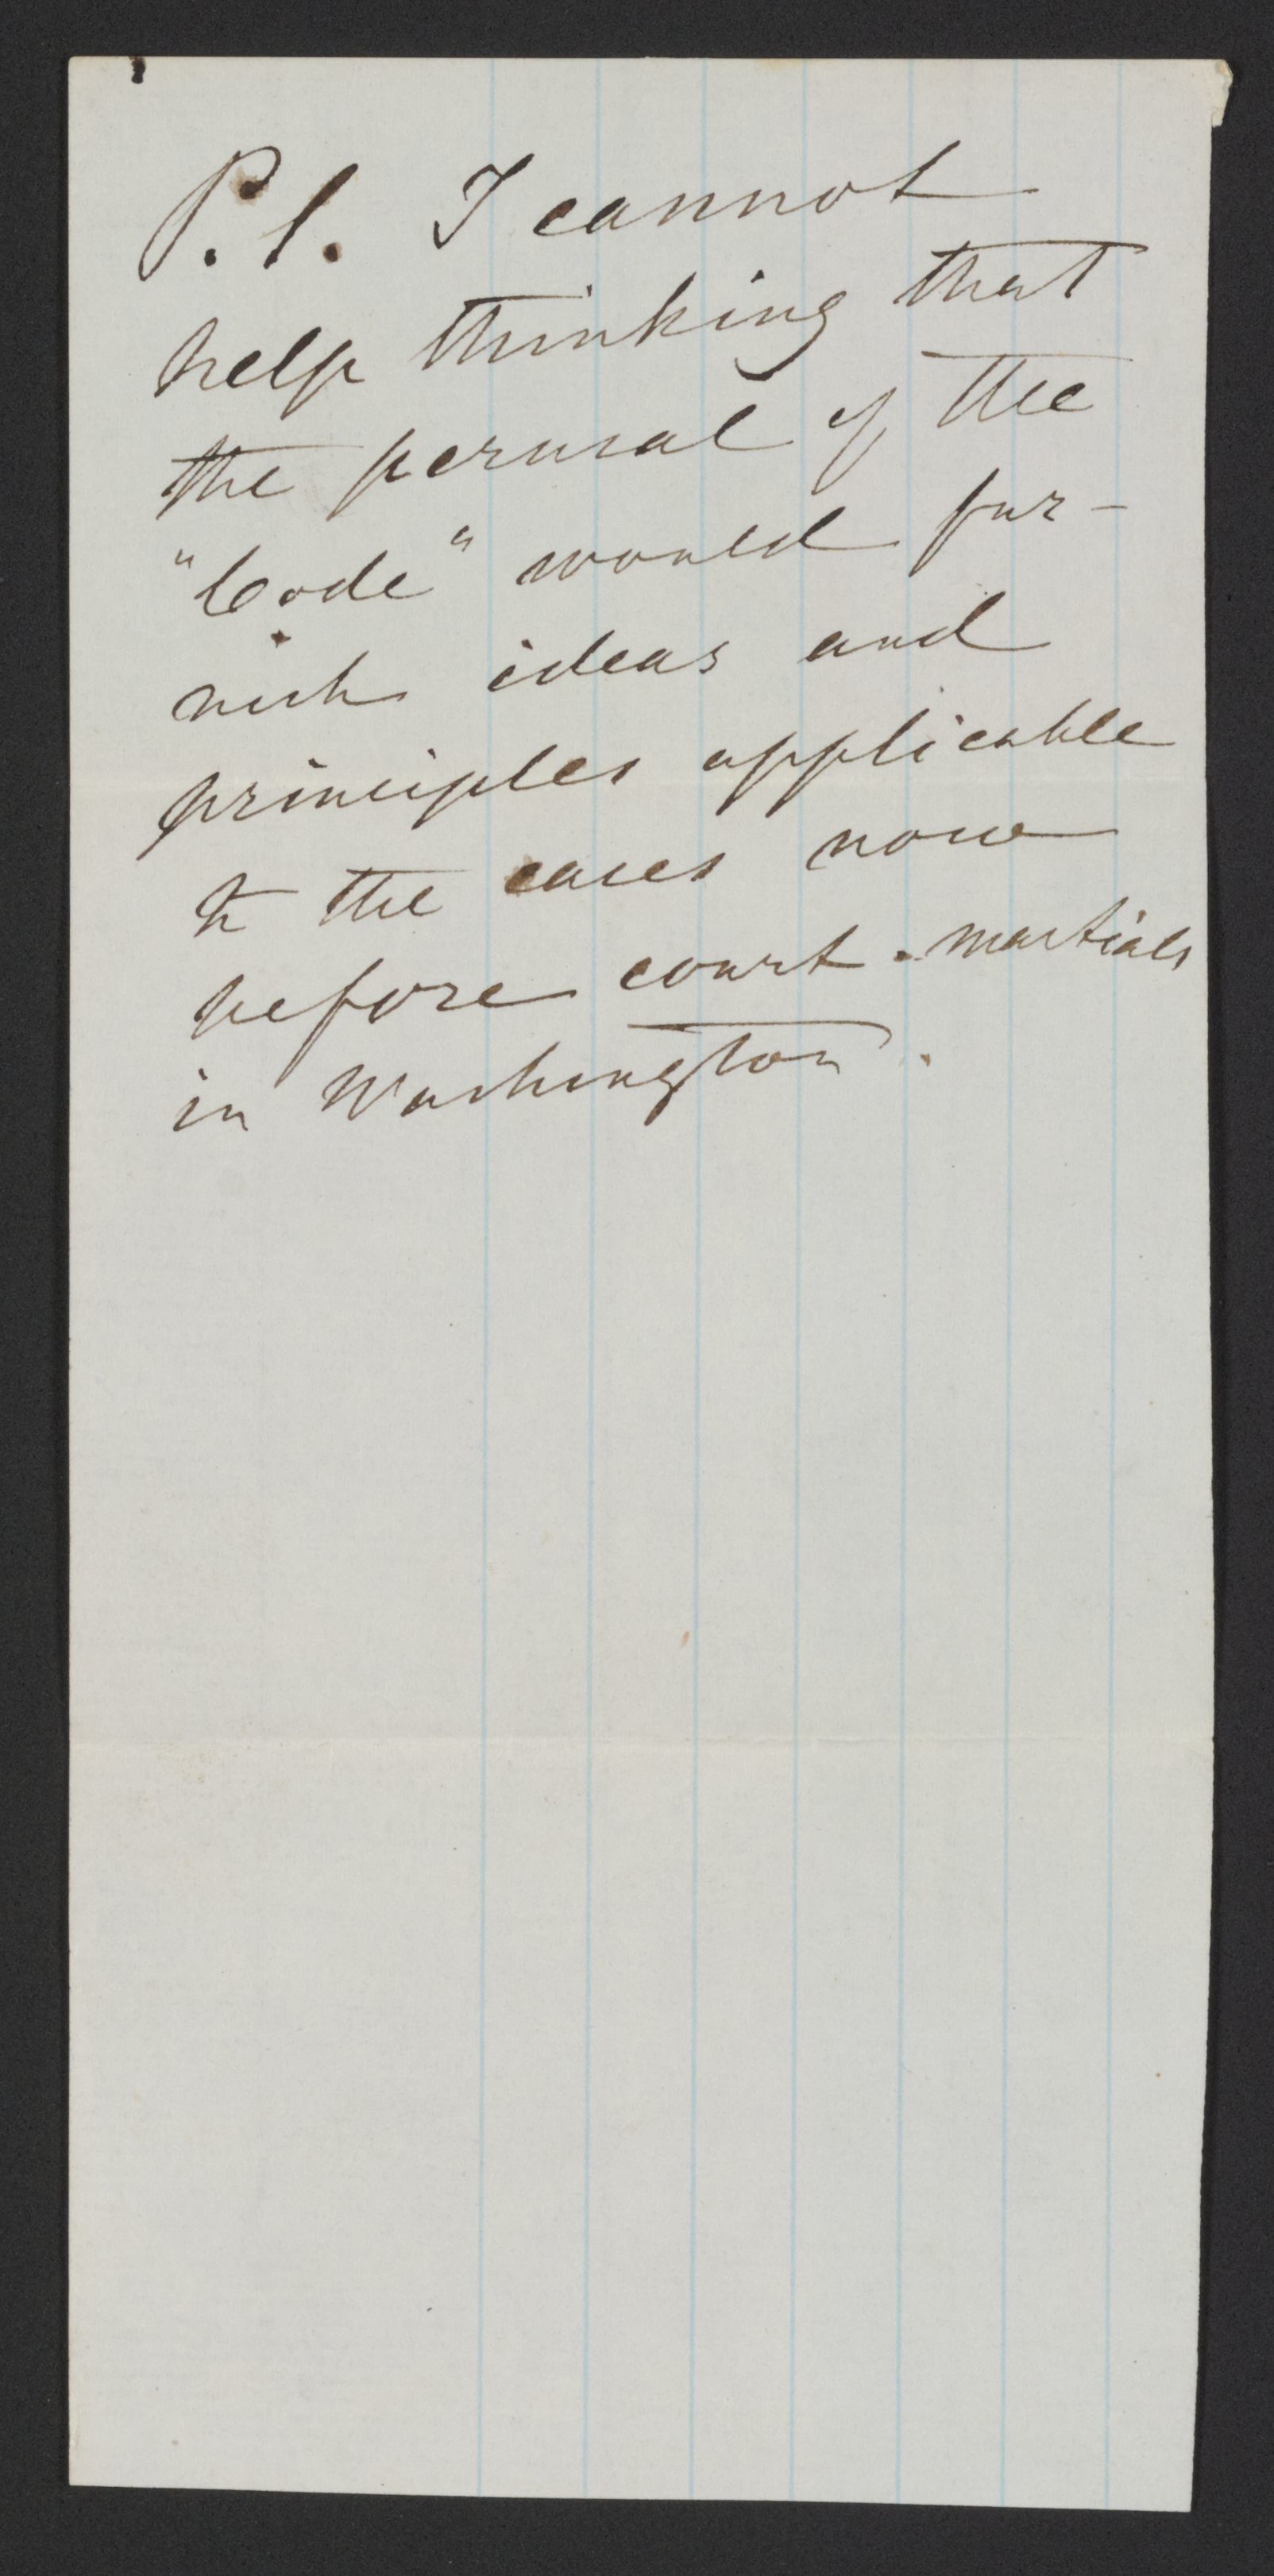 P.S. I cannot
help thinking that
the perusal of the
"Code" would fur-
nish ideas and
principles applicable
to the cases now
before court-martials
in Washington.